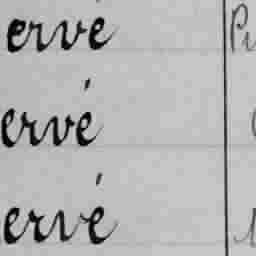 ervé
ervé
ervé